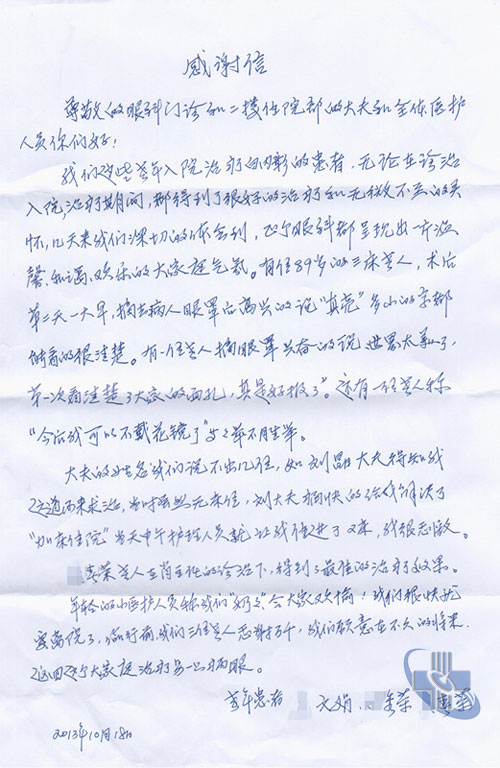 感谢信
尊敬的眼科门诊和二楼住院部的大夫和全体医护
人员你们好!
我们这些老年入院治疗白内彰的患者,无论在诊治
入院,治疗期间,都得到了很好的治疗和无微不至的关
怀,几天来我们深切的体会到,您们眼科都呈现出一片温
馨、和谐、欢乐的大家庭气氛。有位89岁的三床老人,术后
第二天一大早,摘去病人眼罩后高兴的说"真亮"多山的字都
能看的很清楚。有一位老人摘眼罩兴奋的说世界太美了,
第一次看清楚了大家的面孔,真是好极了"。还有一位老人称
"今后我可以不戴花镜了"
大夫的姓名我们说不出几位,如刘 大夫得知我
远道而来求治,当时虽然无床位,刘大夫爽快的给我解决了
"加床住院"当天中午护理人员就让我住进了 ,我很感激。
荣老人在肖主任的诊治下,得到了最佳的治疗效果。
年轻的小医护人员称我们" "令大家欢愉!我们很快就
要离院了,临行前,我们三位老人感谢万千,我们愿意在不久的将来
返回这个大家庭治疗另一只病眼。
老年患者 文娟、 荣 荣
2013年10月18日